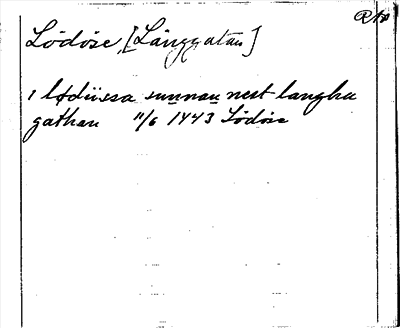 Lödöse, [Långgatan]
i lødüssa sunnan nest langha
gathan 11/6 1443 Lödöse